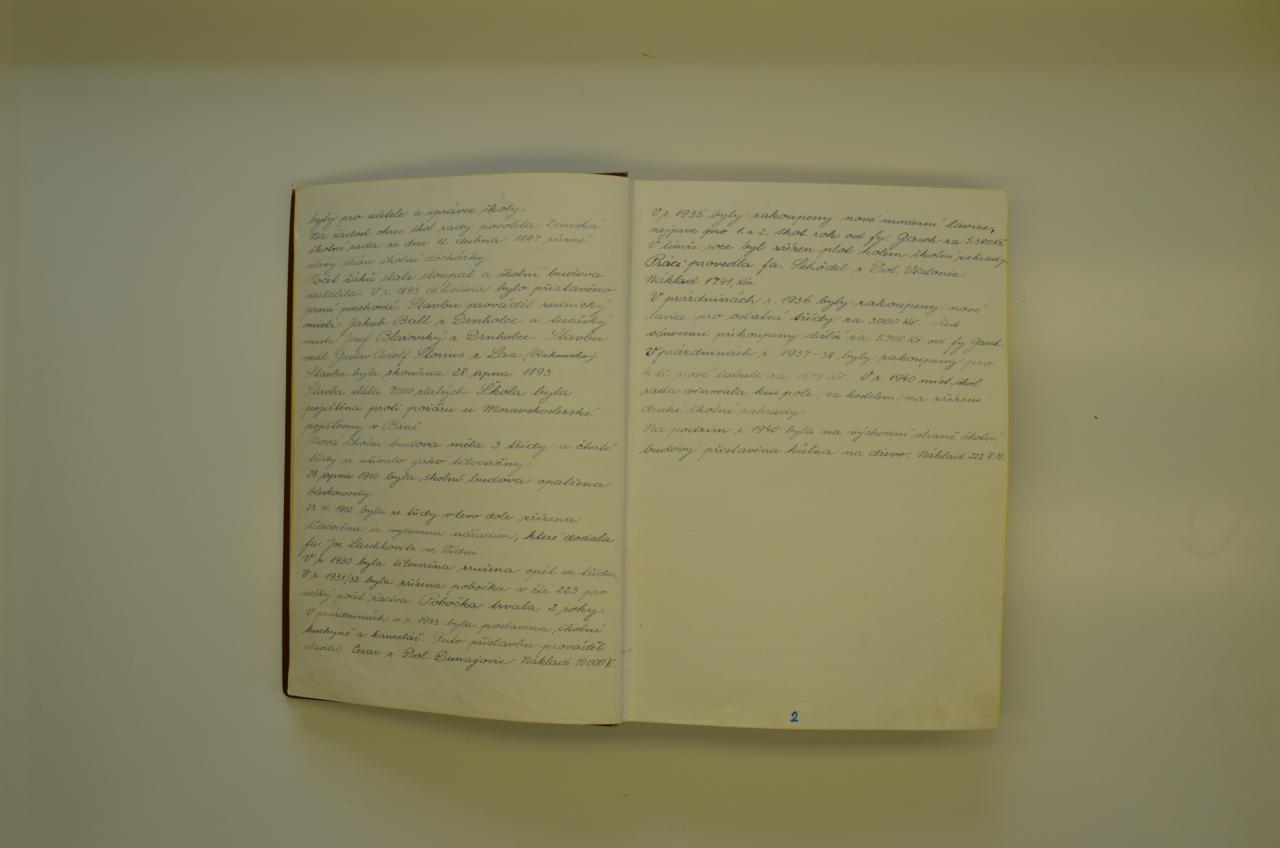 byly pro učitele a správce školy.
Na žádost okres. škol. rady povolila Zemská
školní rada ze dne 12. dubna 1887 různé
úlevy stran školní docházky.
Počet žáků stále stoupal a školní budova
nestačila. V r. 1893 19. května bylo přistavěno
první poschodí. Stavbu prováděl zednický
mistr Jakub Ball z Drnholce a tesařský
mistr Josef Blažovský z Drnholce. Stavbu
vedl Gustav Adolf Storius z Laa (Rakousko)
Stavba byla skončena 28. srpna 1893.
Stavba stála 7000 zlatých. Škola byla
pojištěna proti požáru u Moravskoslezské
pojišťovny v Brně.
Nová školní budova měla 3 třídy a čtvrté
třídy se užívalo jako tělocvičny.
28. srpna 1910 byla školní budova opatřena
bleskovody.
1912 byla ze třídy vlevo dole zřízena
tělocvična a vybavena nářadím, které dodala
fa. Jos. Laschkovitz ve Vídni.
V r. 1930 byla tělocvična zrušena opět ve třídu.
V r. 1931/32 byla zřízena pobočka v čís. 223 pro
velký počet žactva. Pobočka trvala 2 roky.
V prázdninách v r. 1933 byla postavena školní
kuchyně a kancelář. Tuto přístavbu prováděl
stavitel Cesar z Dol. Dunajovic. Náklad 10.000 K.
V r. 1935 byly zakoupeny nové moderní lavice,
nejprve pro 1. a 2. škol. rok od fy. Gasch za 5.300 Kč.
V témže roce byl zřízen plot kolem školní zahrady
Práci provedla fa. Schödel z Dol. Věstonic.
Náklad 1741,- Kčs.
V prázdninách r. 1936 byly zakoupeny nové
lavice pro ostatní třídy za 3.000 Kč. Před
vánocemi přikoupeny další za 5.700 Kč od fy. Gasch
V prázdninách r. 1937-38 byly zakoupeny pro
tř. nové tabule za 1575 Kč. V r. 1940 míst. škol.
rada věnovala kus pole /za kostelem/ na zřízení
druhé školní zahrady.
Na podzim r. 1940 byla na východní straně školní
budovy přistavena kůlna na dřevo. Náklad 222 R.M.
2